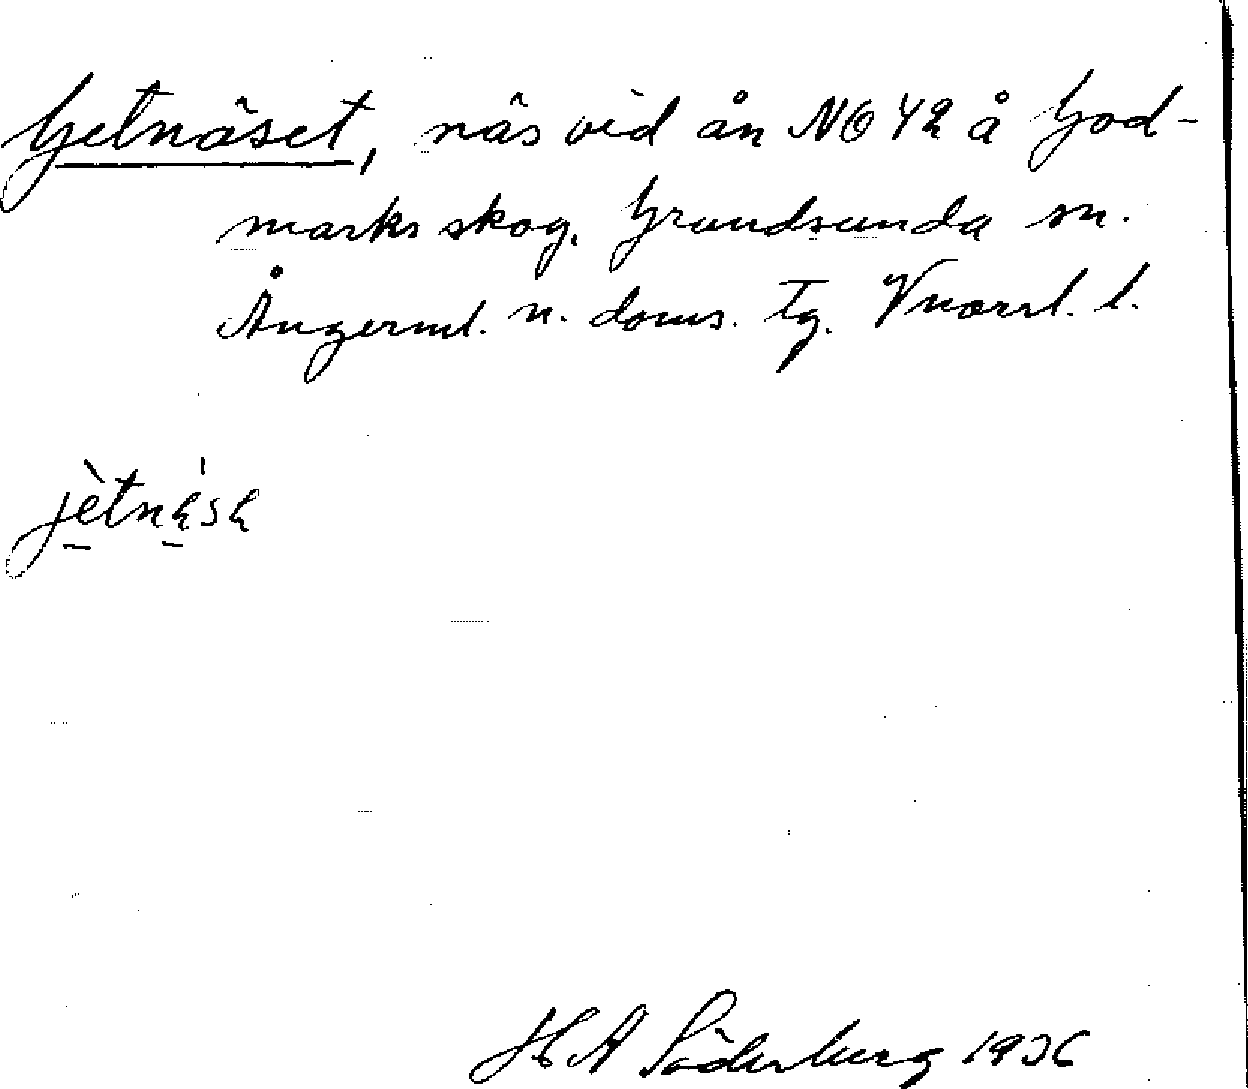 Getnäset, näs vid ån NO 42 å God-
marks skog, Grundsunda sn.
Ångerml. n. doms. Tg. Vnorrl. l.
jètnäsä
HA Söderberg 1936